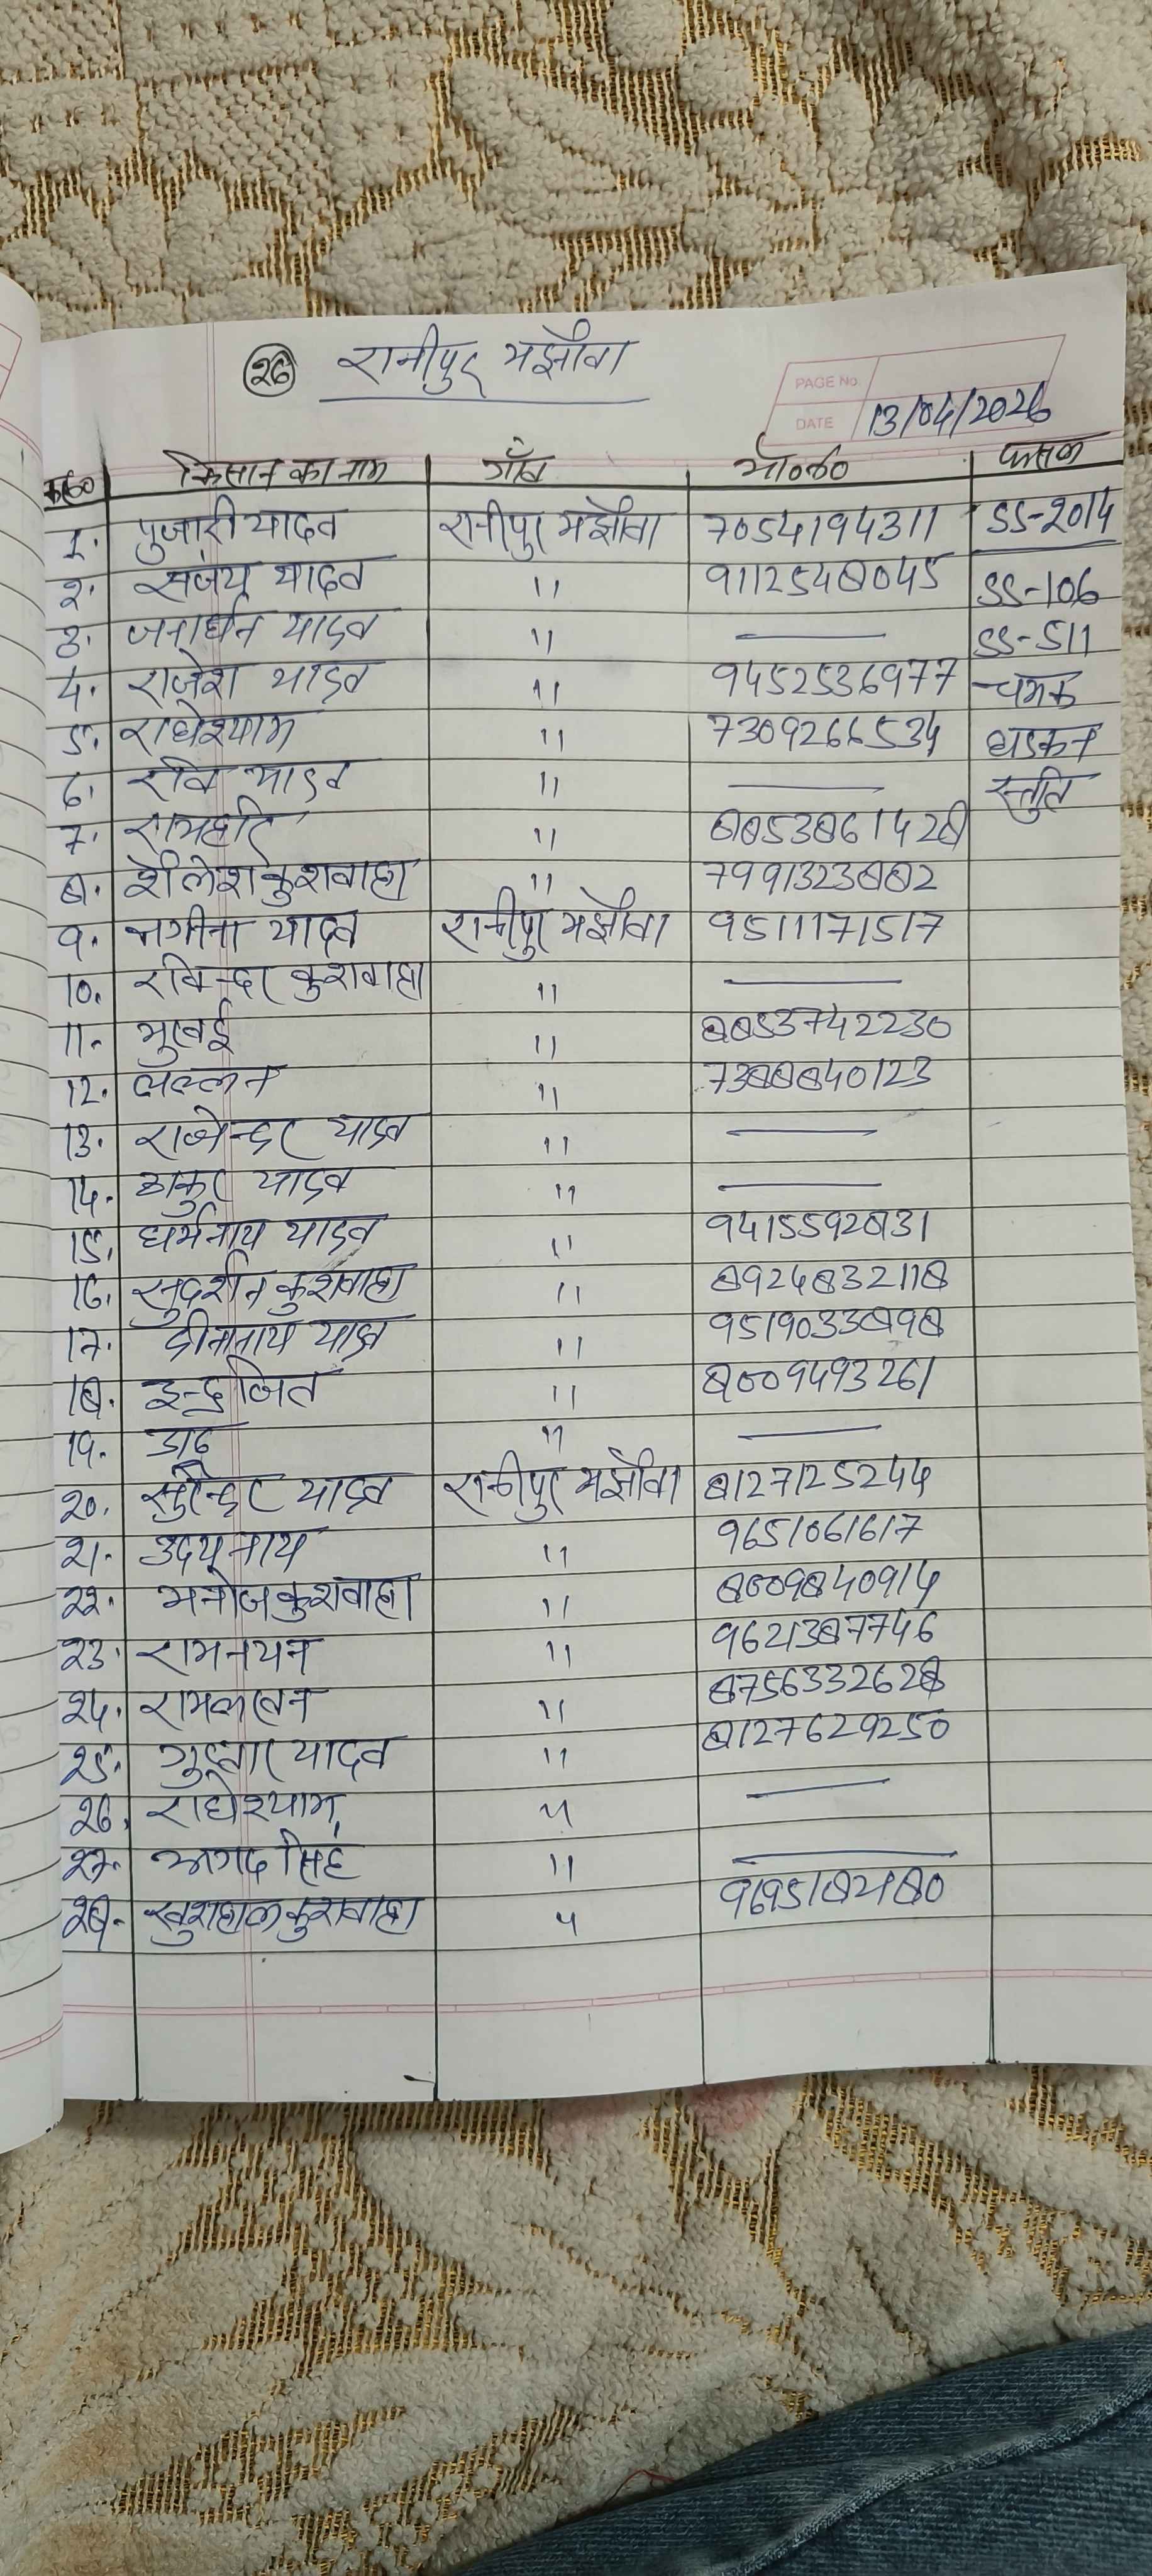 26 रानीपुर मझौवा
PAGE No.
DATE 13/04/2026
क्र०सं० किसान का नाम गाँव मो०नं० फसल
1. पुजारी यादव रानीपुर मझौवा 7054194311 SS-2014
2. संजय यादव " 9112548045 SS-106
3. जनार्धन यादव " — SS-511
4. राजेश यादव " 9452536977 चमक
5. राधेश्याम " 7309266534 धडकन
6. रवि यादव " — स्तुति
7. रामहरि " 8853861428
8. शैलेशकुशवाहा " 7991323882
9. नगीना यादव रानीपुर मझौवा 9511171517
10. रविन्दर कुशवाहा " —
11. मुखई " 8853742230
12. लल्लन " 7388840123
13. राजेन्द्र यादव " —
14. ठाकुर यादव " —
15. धर्मनाथ यादव " 9415592831
16. सुदर्शन कुशवाहा " 8924832118
17. दीनानाथ यादव " 9519033898
18. इन्द्रजित " 8009493261
19. "  —
20. सुरेन्द्र यादव रानीपुर मझौवा 8127125244
21. उदय नाथ " 9651061617
22. मनोजकुशवाहा " 8009840914
23. रामनयन " 9621387746
24. रामलखन " 8756332628
25. यादव " 8127629250
26. राधेश्याम " —
27. अंगद सिंह " —
28. खुशहालकुशवाहा "